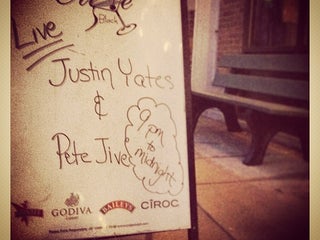 Black
Live
Justin Yates
&
Pete Jive
9pm
to
midnight
GODIVA
BAILEYS
CÎROC